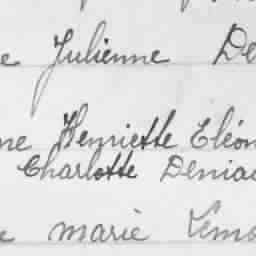 e Julienne De
ne Henriette Eléon
Charlotte Denia
e marie Lema